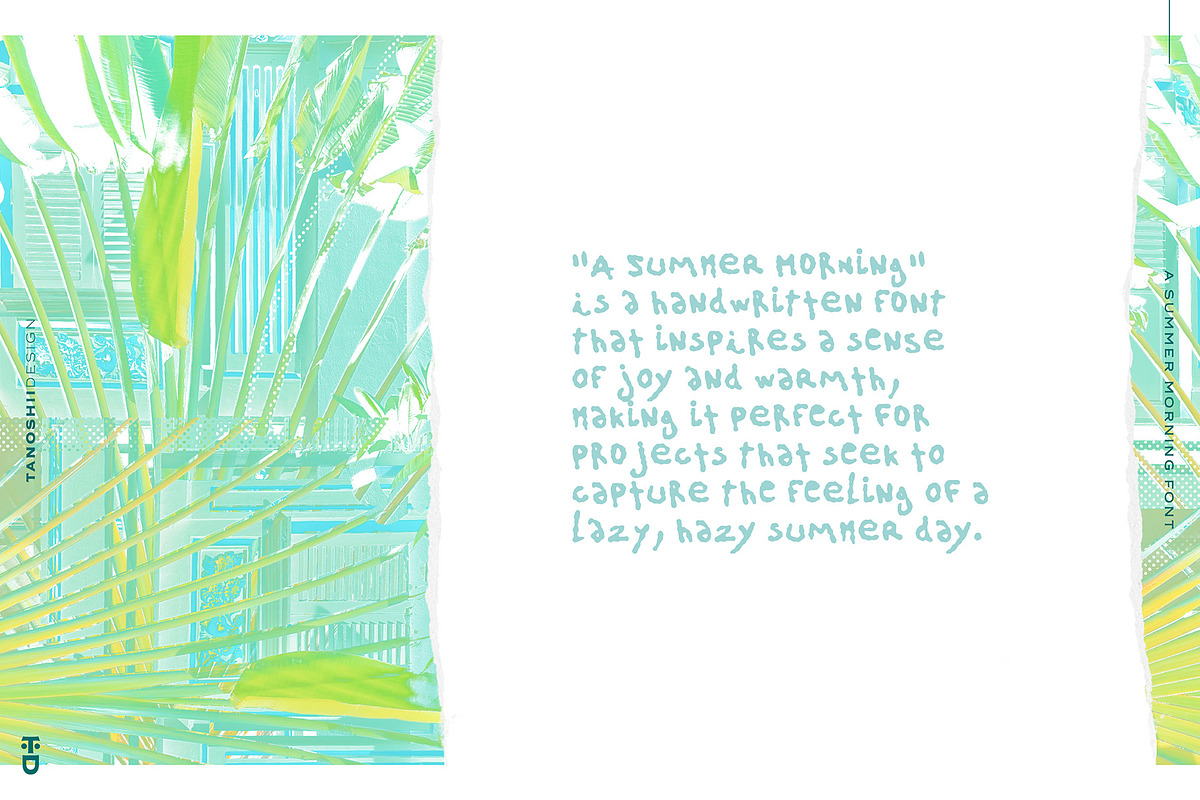 TANOSHIIDESIGN
TD
"A SUMMER MORNING"
is a handwritten font
that inspires a sense
of joy and warmth,
making it perfect for
projects that seek to
capture the feeling of a
lazy, hazy summer day.
A SUMMER MORNING FONT